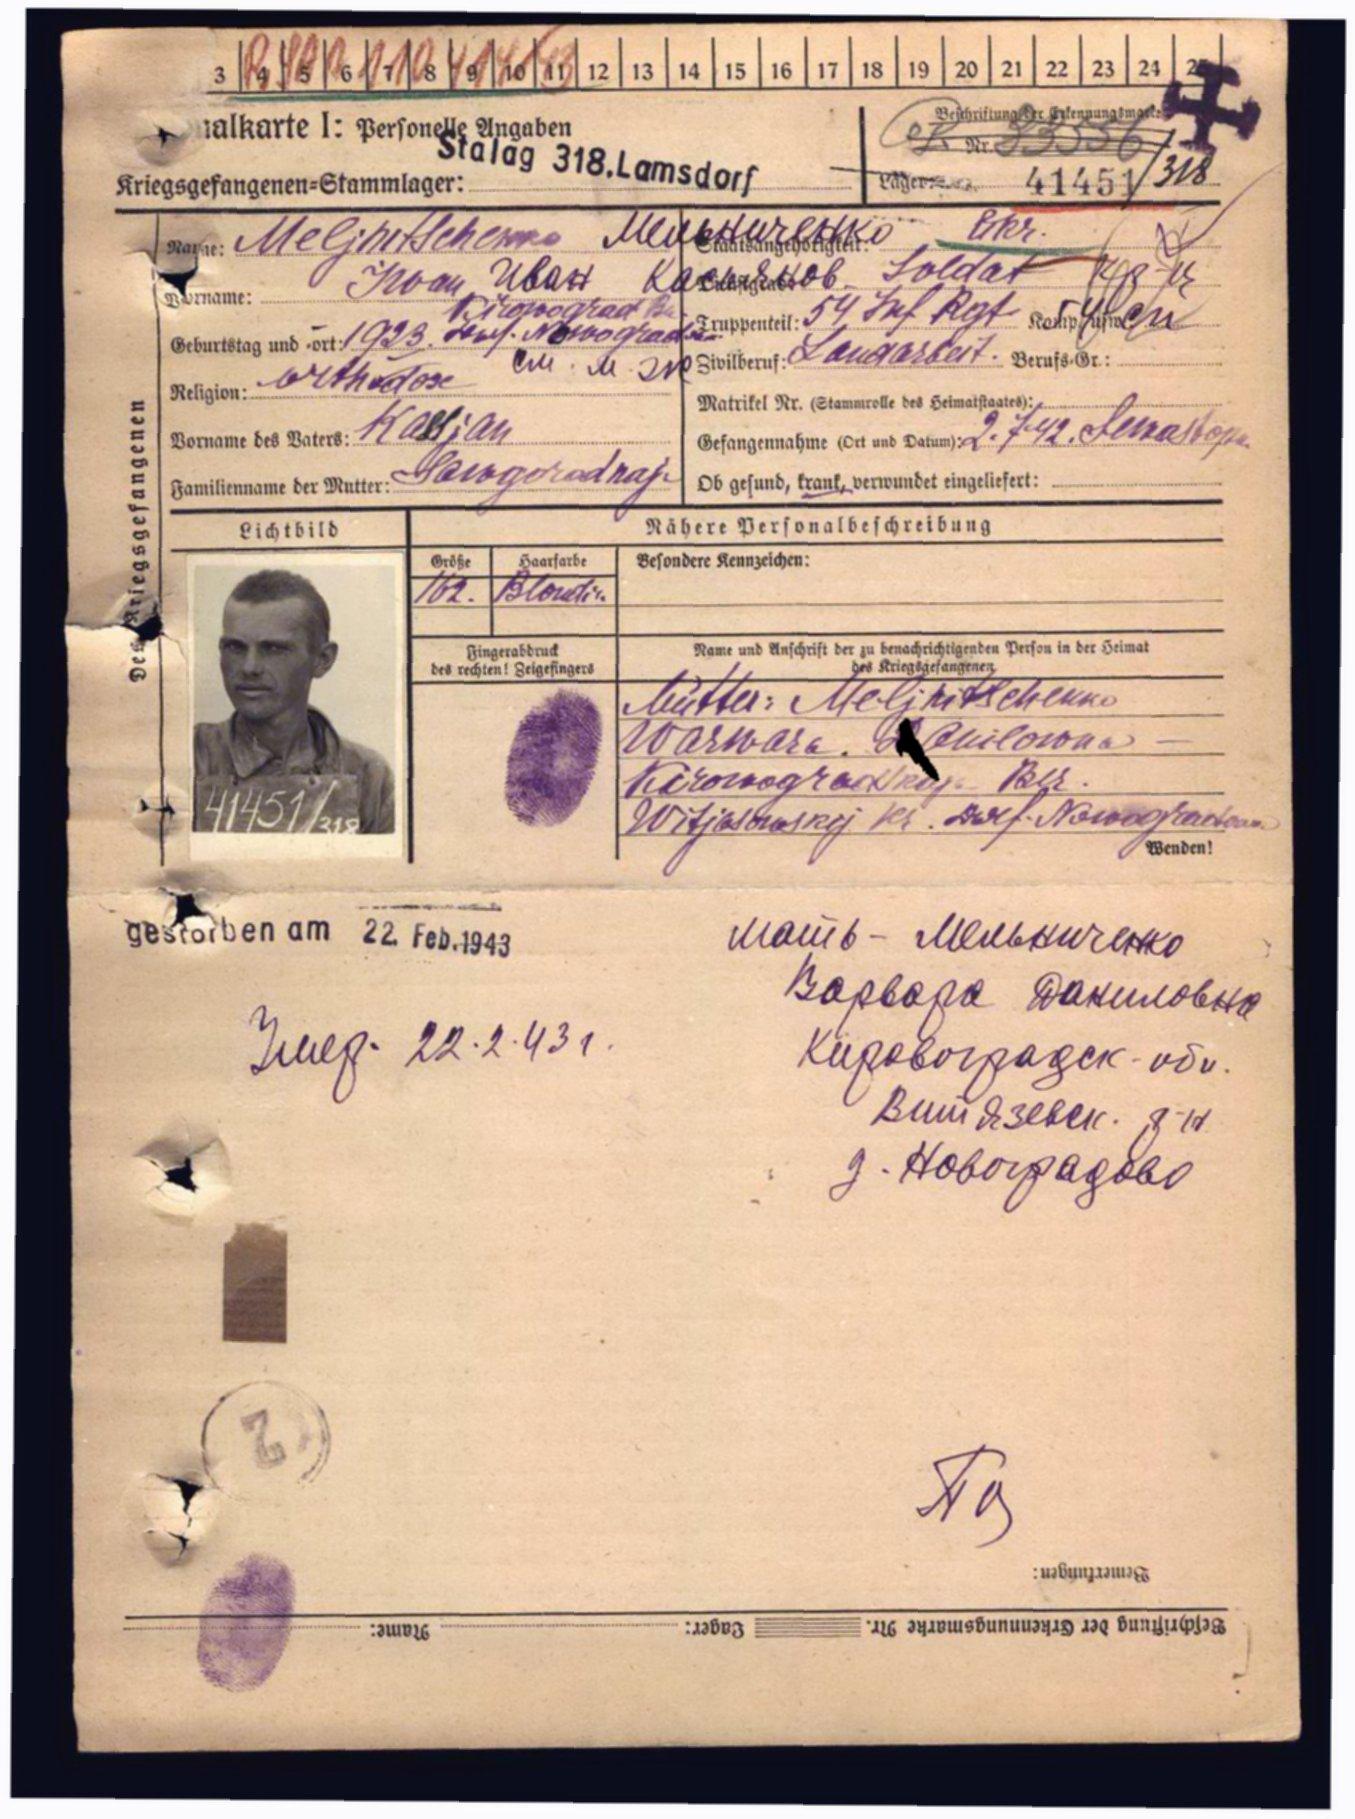 3 4 5 6 7 8 9 10 11 12 13 14 15 16 17 18 19 20 21 22 23 24 25
nalkarte I: Personelle Angaben
Beschriftung der Erkennungsmarke
Nr. 33556
Kriegsgefangenen-Stammlager: Stalag 318. Lamsdorf
Lager 41451/318
Des Kriegsgefangenen
Name: Meljnitschenko Мельниченко
Staatsangehörigkeit: Ukr.
Vorname: Iwan Иван Касьянов.
Dienstgrad: Soldat
Geburtstag und -ort: 1923. Kirowograd Dorf. Nowogradow
Truppenteil: 54 Inf Rgt Komp. usw.: 54 сп
см. м.
Religion: Orthodox
Zivilberuf: Landarbeit. Berufs-Gr.:
Matrikel Nr. (Stammrolle des Heimatstaates):
Vorname des Vaters: Kassjan
Gefangennahme (Ort und Datum): 2.7.42. Sewastopol
Familienname der Mutter:
Ob gesund, krank, verwundet eingeliefert:
Lichtbild
Nähere Personalbeschreibung
Größe Haarfarbe Besondere Kennzeichen:
162. Blondin
Fingerabdruck
des rechten! Zeigefingers
Name und Anschrift der zu benachrichtigenden Person in der Heimat
des Kriegsgefangenen
41451/318
Mutter: Meljnitschenko
Warwara. Danilowna –
Kirowogradskaja Blr.
Witjasowskij kr. Dorf. Nowogradowo
Wenden!
gestorben am 22. Feb. 1943
мать - Мельниченко
Варвара Даниловна
Умер. 22.2.43 г.
Кировоградск. обл.
Витязевск. р-н
д. Новоградово
2
Bemerkungen:
Beschriftung der Erkennungsmarke Nr. Lager: Name: